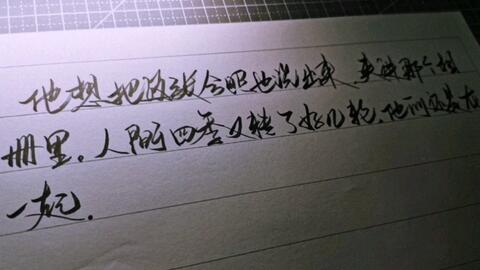 他想把这张合照也洗出来,夹进那个相
册里。人间四季又转了好几轮,他们还是在
一起.